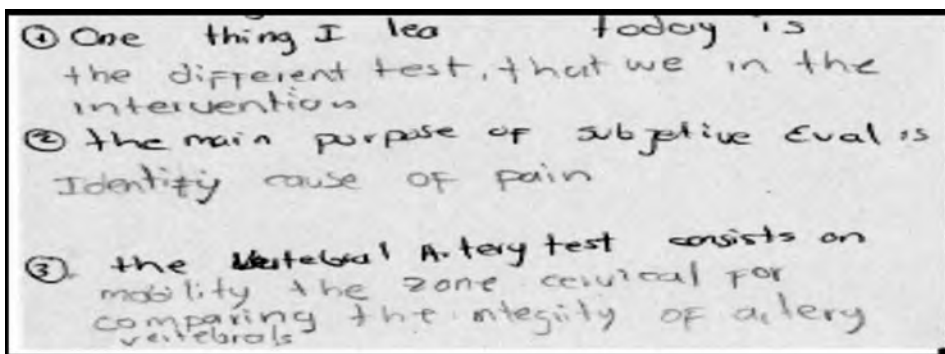 ① One thing I lea today is
the different test, that we in the
intervention
② the main purpose of subjetive Eval is
Identifiy cause of pain
③. the Vertebral Artery test consists on
mobility the zone cervical for
comparing the integrity of artery
vertebrals